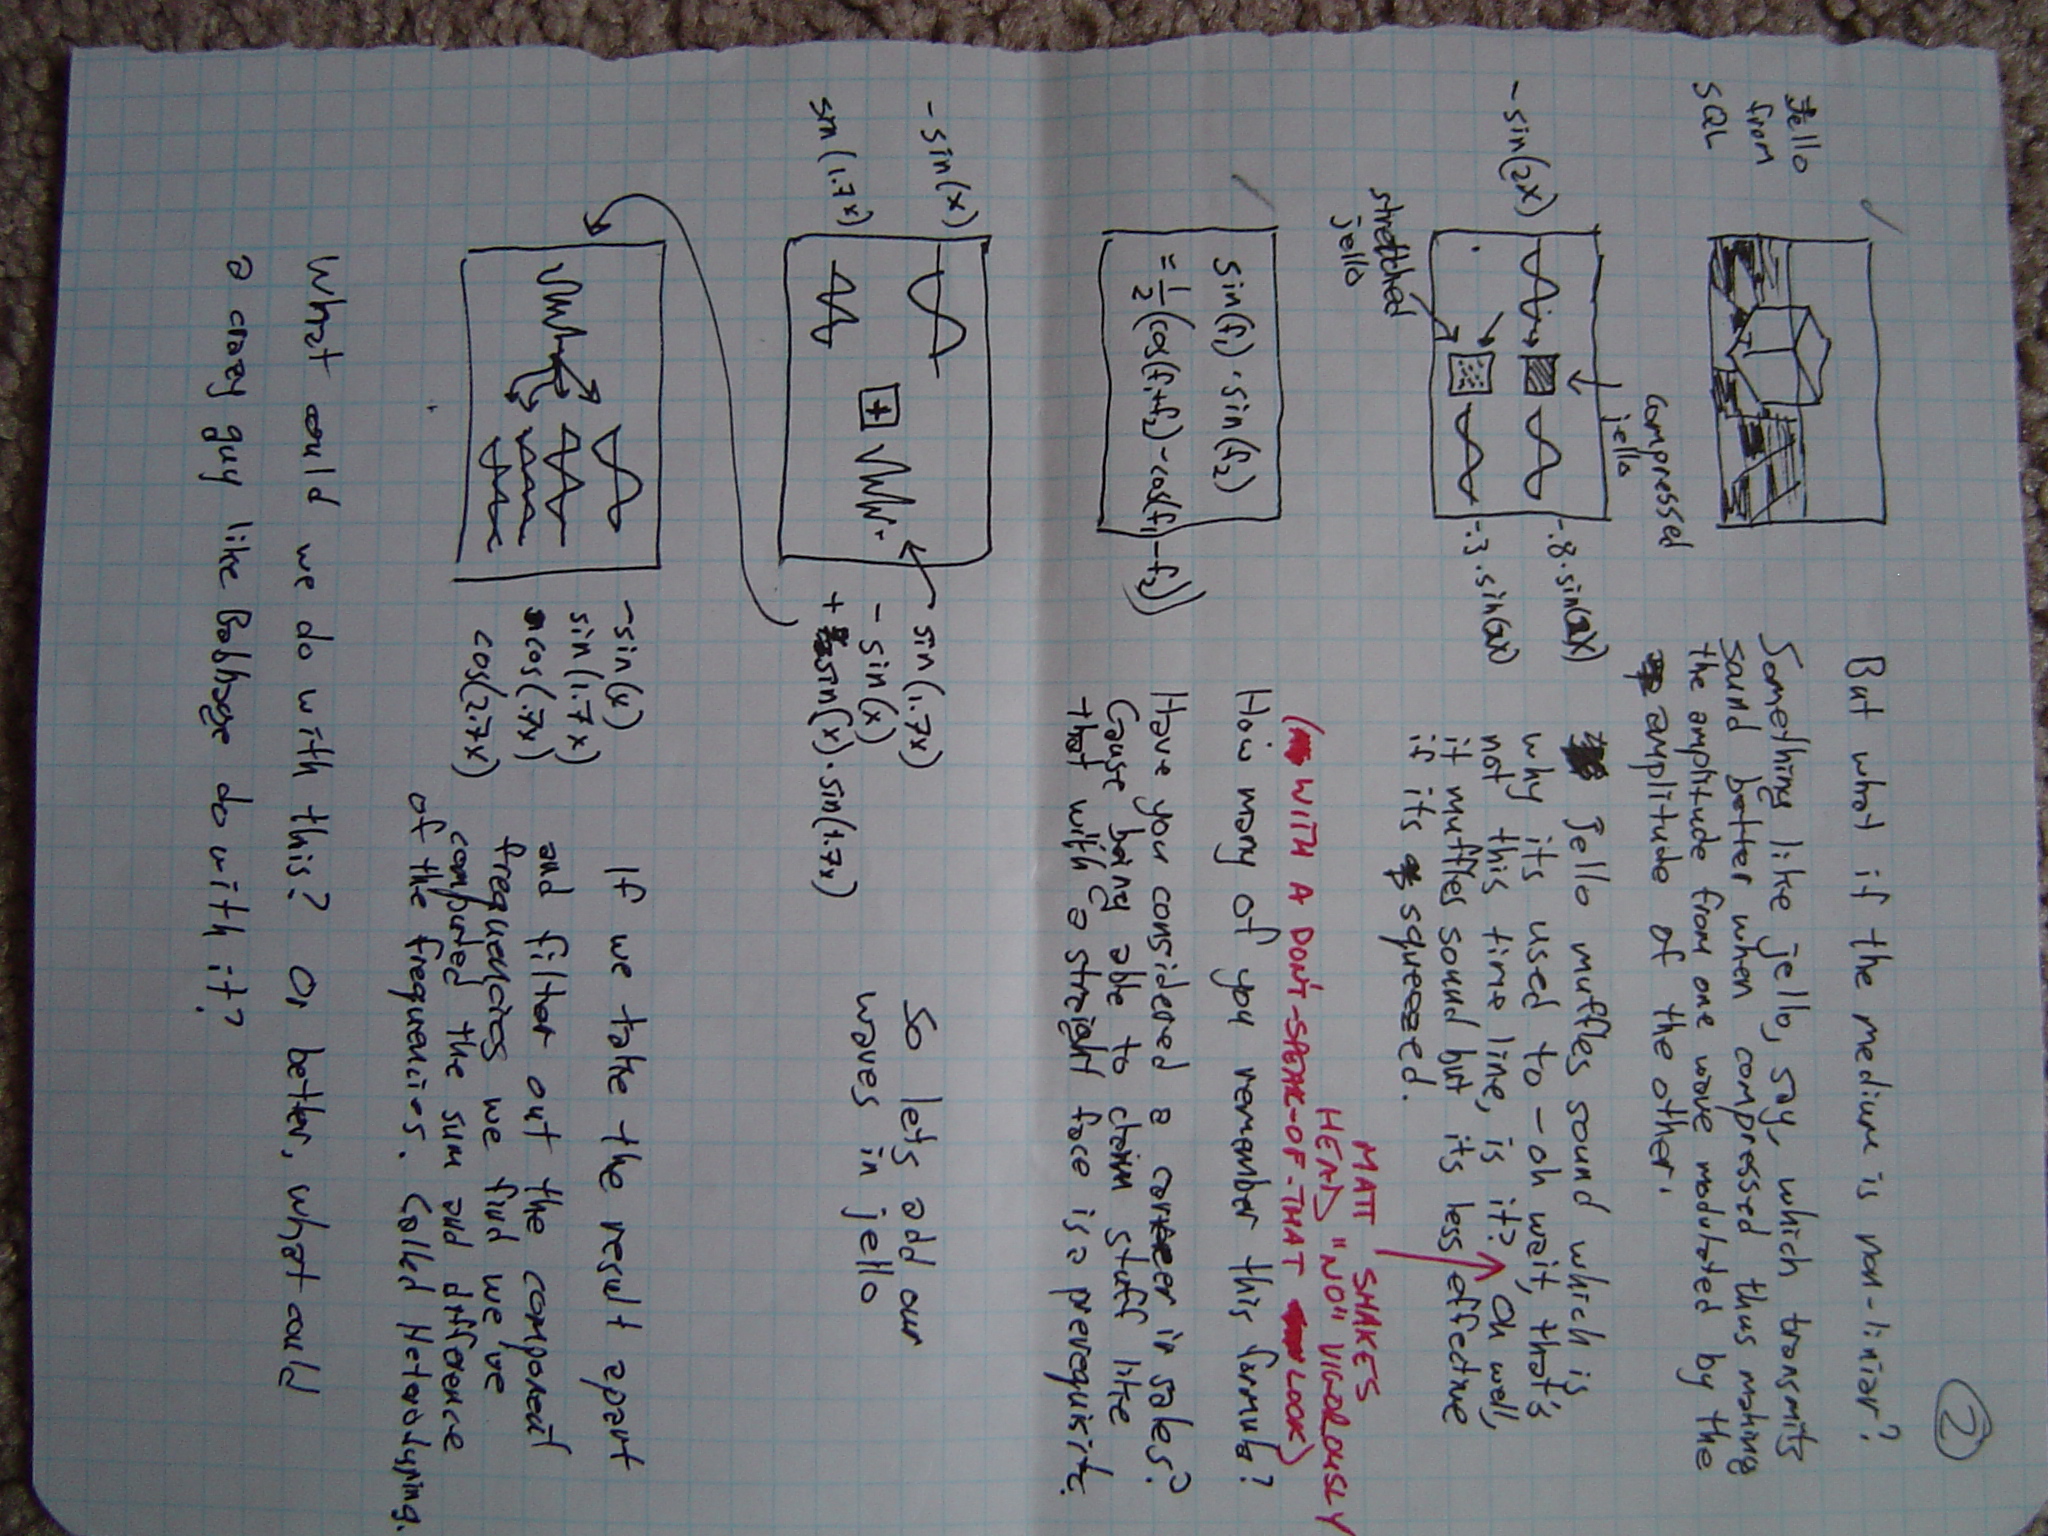 2
Jello
from
SQL
But what if the medium is non-liniar?
Something like jello, say, which transmits
sound better when compressed thus making
the amplitude from one wave modulated by the
amplitude of the other.
compressed
jello
-sin(2x)
-.8.sin(2x)
-.3.sin(2x)
stretched
jello
Jello muffles sound which is
why its used to - oh wait, that's
not this time line, is it? Oh well,
it muffles sound but its less effective
if its squeezed.
MATT SHAKES
HEAD "NO" VIGOROUSLY
(WITH A DON'T-SPEAK-OF-THAT LOOK)
sin(f₁)·sin(f₂)
= 1/2 (cos(f₁+f₂)-cos(f₁-f₂))
How many of you remember this formula?
Have you considered a career in sales?
Cause being able to claim stuff like
that with a streight face is a prerequisite.
-sin(x)
sin(1.7x)
+
sin(1.7x)
- sin(x)
+ sin(x)·sin(1.7x)
So lets add our
waves in jello
-sin(x)
sin(1.7x)
cos(.7x)
cos(2.7x)
If we take the result apart
and filter out the component
frequencies we find we've
computed the sum and difference
of the frequencies. Called Heterodyning.
What could we do with this? Or better, what could
a crazy guy like Babbage do with it?